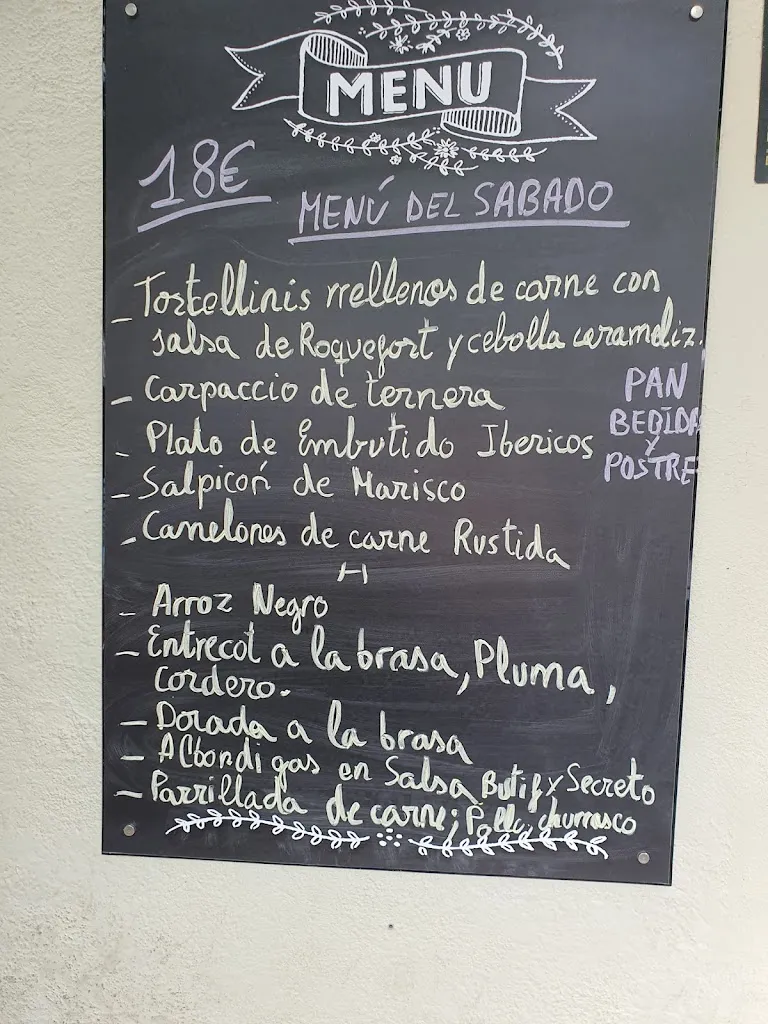 MENU
18€
MENÚ DEL SABADO
- Tortellinis rrellenos de carne con
salsa de Roquefort y cebolla carameliz.
- Carpaccio de ternera
- Plato de Embutido Ibericos
- Salpicón de Marisco
- Canelones de carne Rustida
PAN
BEBIDA
Y
POSTRE
- Arroz Negro
- Entrecot a la brasa, Pluma,
cordero.
- Dorada a la brasa
- Albondigas en Salsa
- Parrillada de carne; Pollo, churrasco
Butif y Secreto